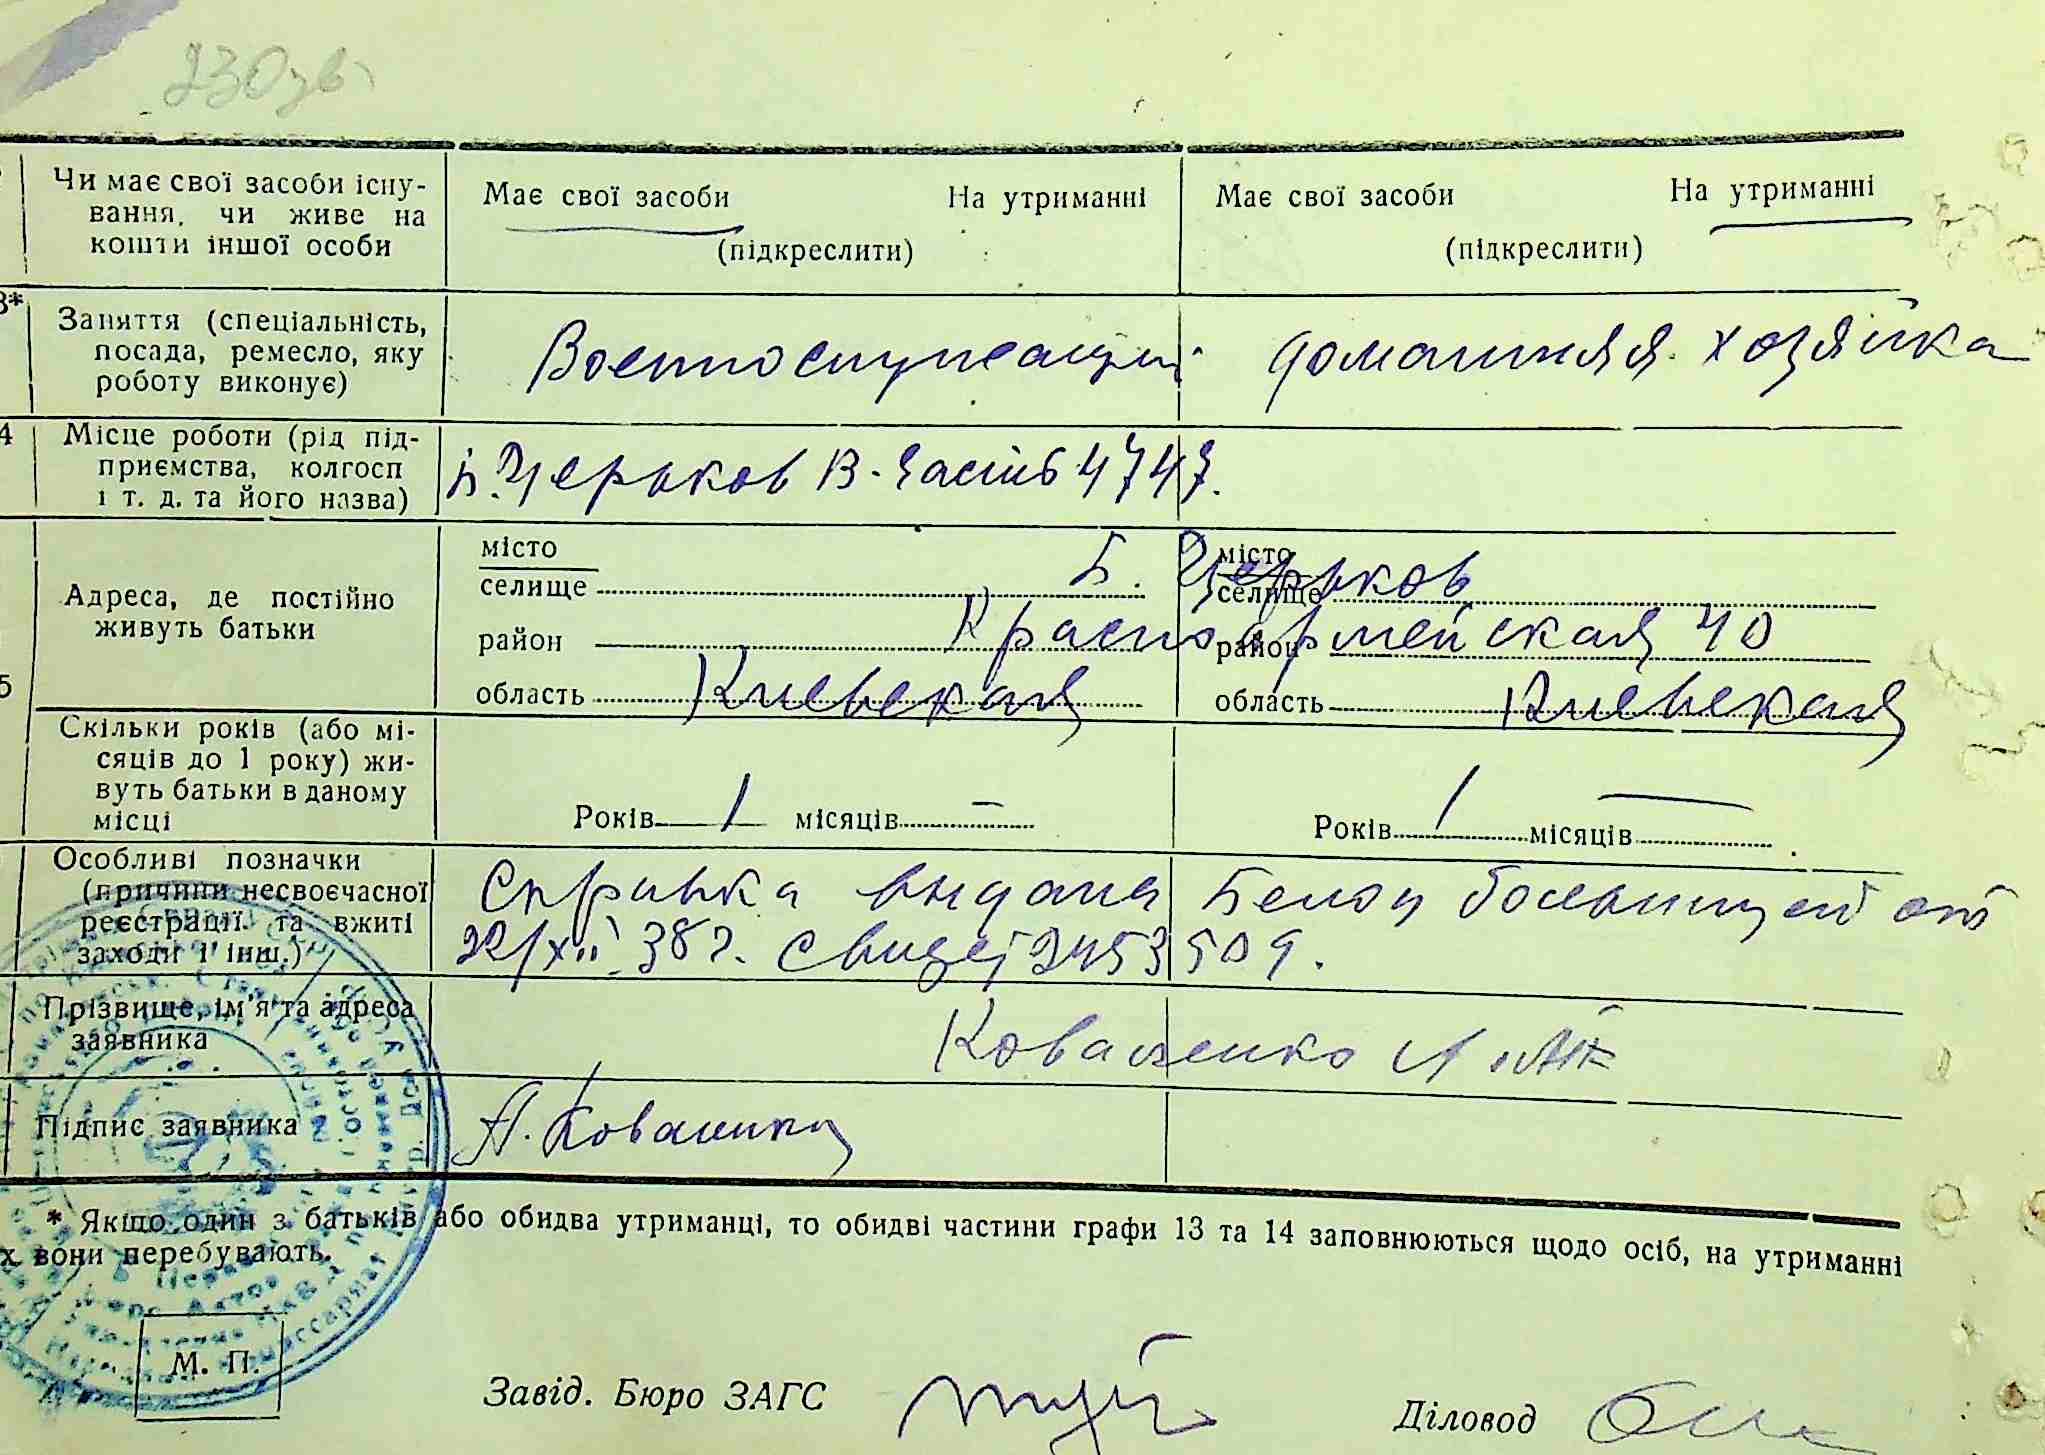 230 зв
Чи має свої засоби існу-
вання, чи живе на
кошти іншої особи
Має свої засоби На утриманні
(підкреслити)
Має свої засоби На утриманні
(підкреслити)
3*
Заняття (спеціальність,
посада, ремесло, яку
роботу виконує)
Военнослужащий
домашняя хозяйка
4
Місце роботи (рід під-
приємства, колгосп
і т. д. та його назва)
Б. Церьков В. Часть 4747.
5
Адреса, де постійно
живуть батьки
місто
селище
район
область Киевская
місто
селище
район
область Киевская
Б. Церьков
Красноармейская 40
Скільки років (або мі-
сяців до 1 року) жи-
вуть батьки в даному
місці
Років 1 місяців –
Років 1 місяців –
Особливі позначки
(причини несвоєчасної
реєстрації та вжиті
заходи і інш.)
Справка выдана Белоц больницей от
22/XII 38 г. Свидет 2453509.
Прізвище, ім'я та адреса
заявника
Коваленко
Підпис заявника
А. Коваленко
* Якщо один з батьків або обидва утриманці, то обидві частини графи 13 та 14 заповнюються щодо осіб, на утриманні
х вони перебувають.
М. П.
Завід. Бюро ЗАГС
Діловод